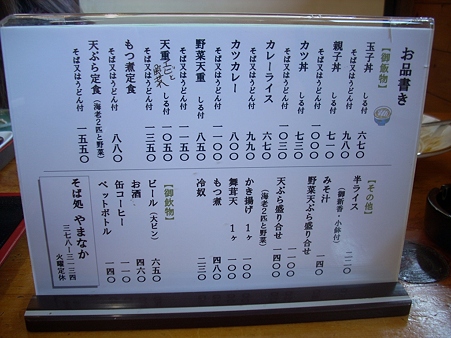 お品書き
【御飯物】
玉子丼 しる付 六七〇
そば又はうどん付 九八〇
親子丼 しる付 七一〇
そば又はうどん付 一〇二〇
カツ丼 しる付 七三〇
そば又はうどん付 一〇三〇
カレーライス 六七〇
そば又はうどん付 九九〇
カツカレー 八〇〇
そば又はうどん付 一一〇〇
野菜天重 しる付 八五〇
そば又はうどん付 一一五〇
天重 しる付 一〇五〇
そば又はうどん付 一三五〇
もつ煮定食 八八〇
そば又はうどん付
天ぷら定食(海老2匹と野菜)
そば又はうどん付 一五五〇
【その他】
半ライス 二二〇
(御新香・小鉢付)
みそ汁
野菜天ぷら盛り合せ
天ぷら盛り合せ 一四〇〇
(海老2匹と野菜)
かき揚げ 1ヶ 一〇〇
舞茸天 1ヶ
もつ煮 四八〇
冷奴 二三〇
【御飲物】
ビール(大ビン) 六五〇
お酒 四六〇
缶コーヒー
ペットボトル
そば処 やまなか
三七八-三一三四
火曜定休